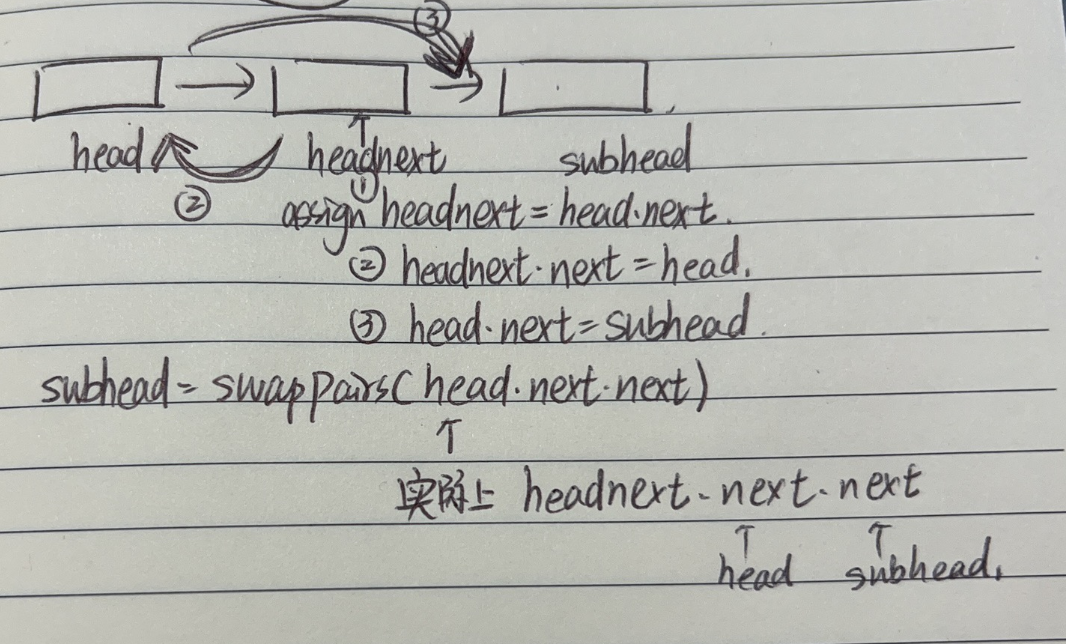 ③
head headnext subhead
② ①
assign headnext = head.next.
② headnext.next = head.
③ head.next = subhead.
subhead = swappairs(head.next.next)
↑
实际上 headnext.next.next
↑ ↑
head subhead.